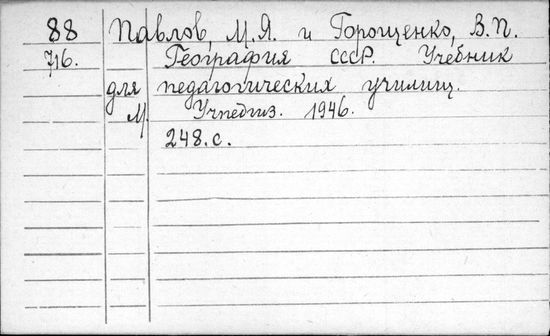 88 Павлов, М.Я. и Горощенко, В.П.
716. География СССР. Учебник
для педагогических училищ.
М. Учпедгиз. 1946.
248.с.